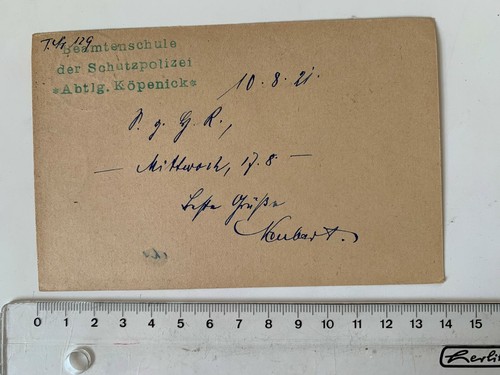 T. Sg 129
Beamtenschule
der Schutzpolizei
*Abtlg. Köpenick*
10.8.21.
S. g. H. R.,
— Mittwoch, 17.8 —
Beste Grüße
Neubart.
0 1 2 3 4 5 6 7 8 9 10 11 12 13 14 15
Herlitz